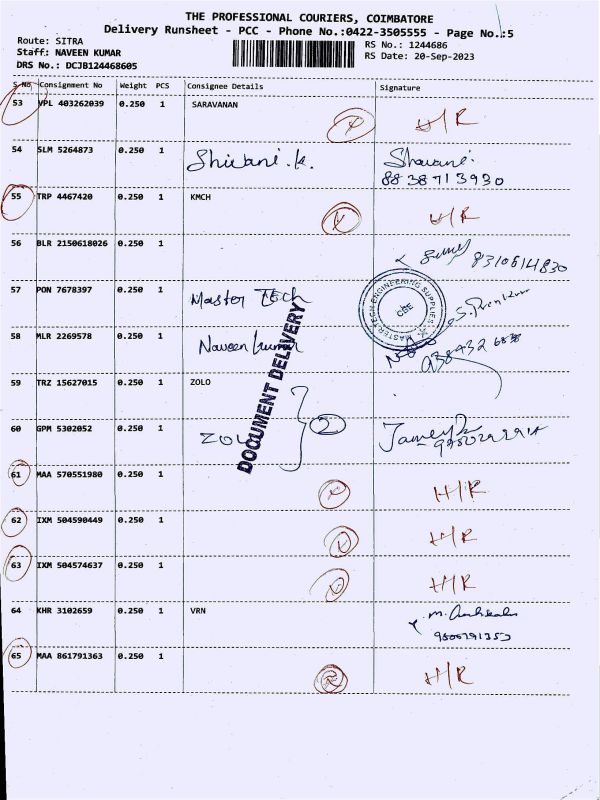 THE PROFESSIONAL COURIERS, COIMBATORE
Delivery Runsheet - PCC - Phone No.:0422-3505555 - Page No.:5
Route: SITRA
RS No.: 1244686
Staff: NAVEEN KUMAR
RS Date: 20-Sep-2023
DRS No.: DCJB124468605
S No Consignment No Weight PCS Consignee Details Signature
53 VPL 403262039 0.250 1 SARAVANAN H/R
54 SLM 5264873 0.250 1 Shivani.k.
8838713930
55 TRP 4467420 0.250 1 KMCH H/R
56 BLR 2150618026 0.250 1
57 PON 7678397 0.250 1 Master Tech
MASTER TECH ENGINEERING SUPPLIES
CBE
58 MLR 2269578 0.250 1 Naveen kumar
DOCUMENT DELIVERY
59 TRZ 15627015 0.250 1 ZOLO
60 GPM 5302052 0.250 1 2
61 MAA 570551980 0.250 1 H/R
62 IXM 504590449 0.250 1 H/R
63 IXM 504574637 0.250 1 H/R
64 KHR 3102659 0.250 1 VRN
65 MAA 861791363 0.250 1 H/R